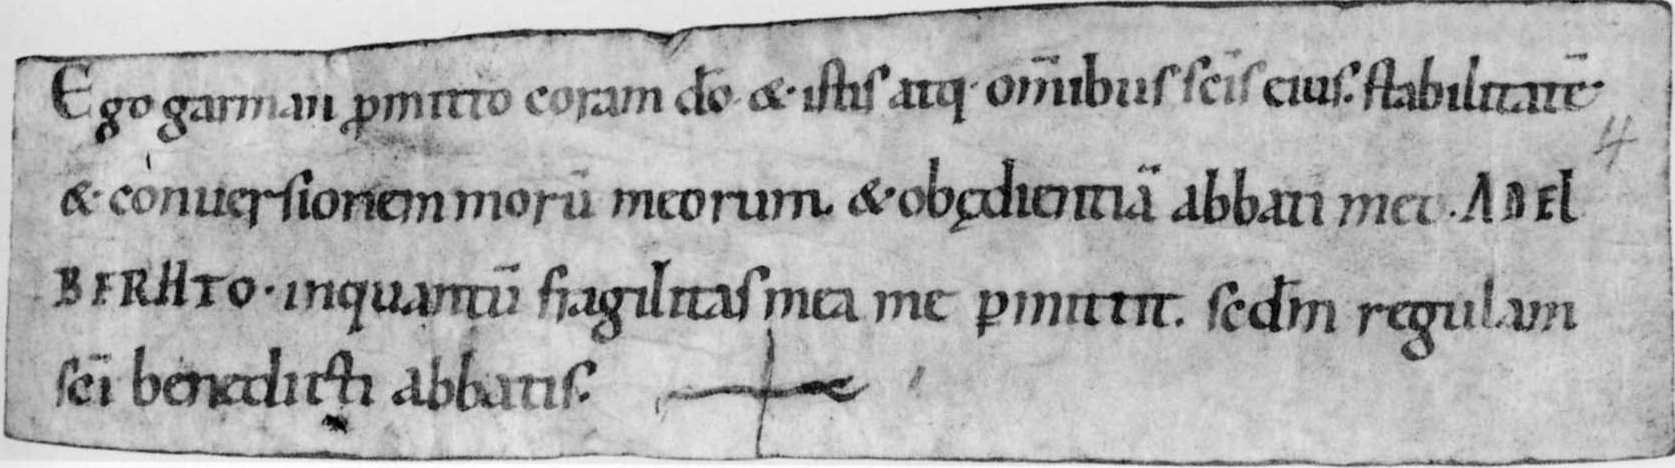 Ego garman ꝓmitto coram dō· &· istis atq· om̄ibus sc̄is eius. stabilitatē·
4
&· conuersionem morū meorum. &· obędientiā abbati meo. ADEL
BERHTO· inquantū fragilitas mea me ꝑmittit. scd̄m regulam
sc̄i benedicti abbatis.